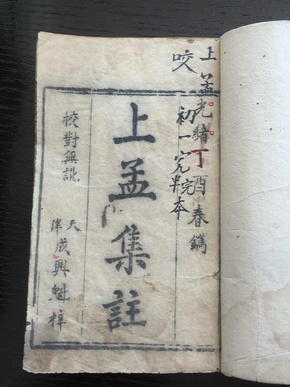 上孟光緒丁酉春鐫
咬
初一
本
上孟集註
校對無訛
天津成興魁梓